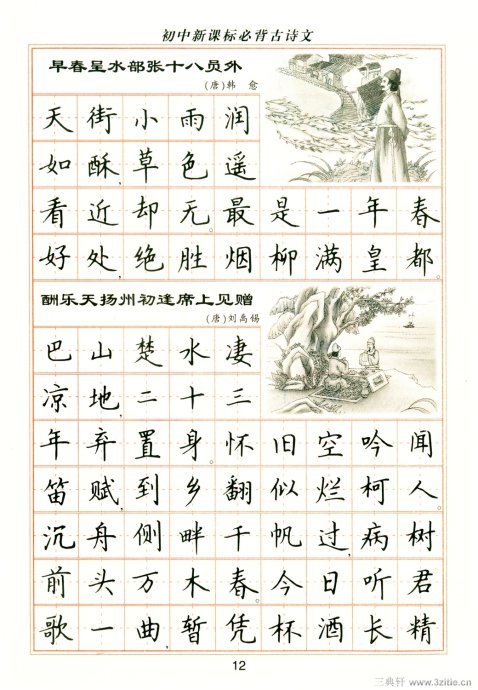 初中新课标必背古诗文
早春呈水部张十八员外
(唐)韩 愈
天街小雨润
如酥,草色遥
看近却无。最是一年春
好处,绝胜烟柳满皇都。
酬乐天扬州初逢席上见赠
(唐)刘禹锡
巴山楚水凄
凉地,二十三
年弃置身。怀旧空吟闻
笛赋,到乡翻似烂柯人。
沉舟侧畔千帆过,病树
前头万木春。今日听君
歌一曲,暂凭杯酒长精
12
三典轩 www.3zitie.cn